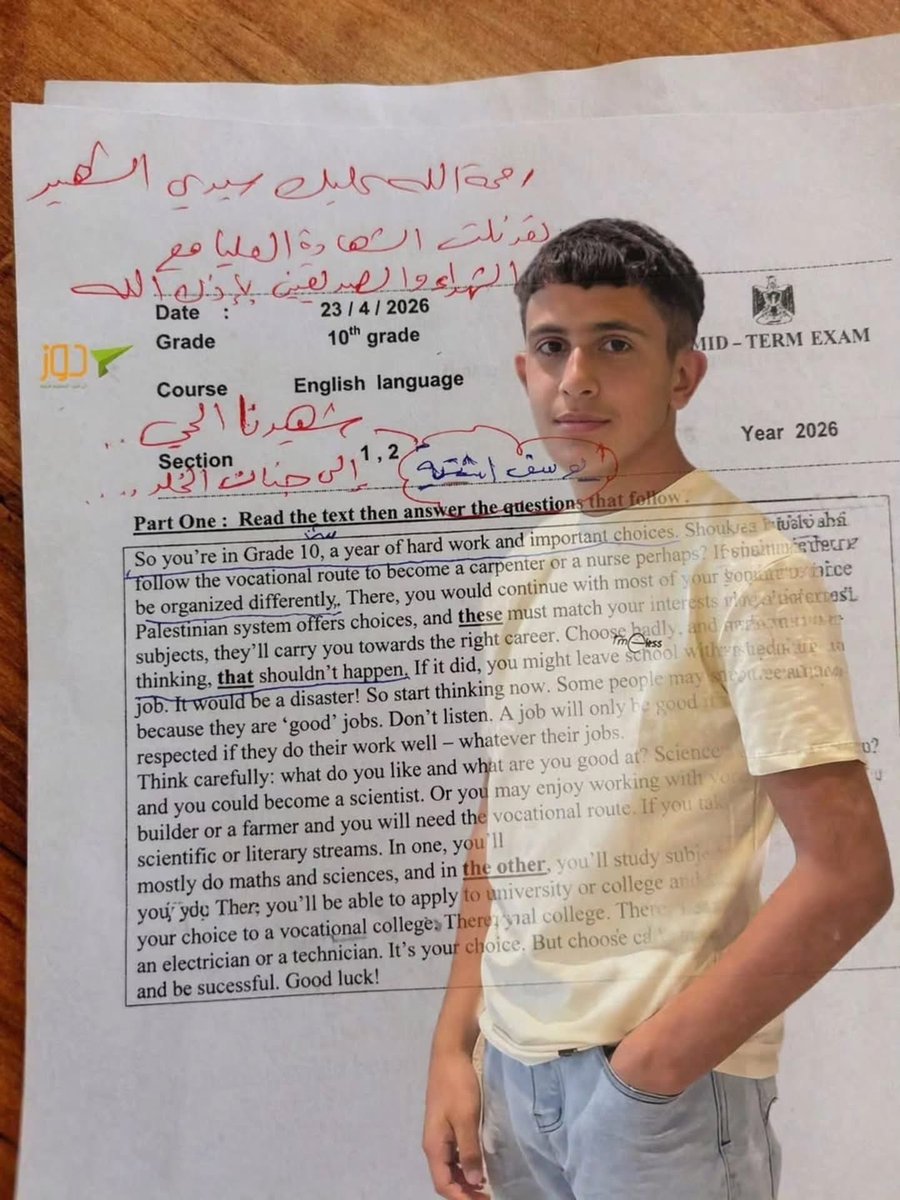 رحمة الله عليك سيدي الشهيد
لقد نلت الشهادة العليا مع
الشهداء والصديقين بإذن الله
Date : 23 / 4 / 2026
Grade 10th grade
MID – TERM EXAM
دوز
Course English language
شهيدنا الحي ..
Year 2026
Section 1 , 2
إلى جنات الخلد ....
يوسف اشتيه
Part One : Read the text then answer the questions that follow .
So you're in Grade 10, a year of hard work and important choices.
follow the vocational route to become a carpenter or a nurse perhaps? If
be organized differently,. There, you would continue with most of your
Palestinian system offers choices, and these must match your interests
subjects, they'll carry you towards the right career. Choose badly, and
thinking, that shouldn't happen. If it did, you might leave school
job. It would be a disaster! So start thinking now. Some people may
because they are 'good' jobs. Don't listen. A job will only be good
respected if they do their work well – whatever their jobs.
Think carefully: what do you like and what are you good at? Science
and you could become a scientist. Or you may enjoy working with
builder or a farmer and you will need the vocational route. If you
scientific or literary streams. In one, you'll
mostly do maths and sciences, and in the other, you'll study
you'll be able to apply to university or college and
your choice to a vocational college. college.
an electrician or a technician. It's your choice. But choose
and be sucessful. Good luck!